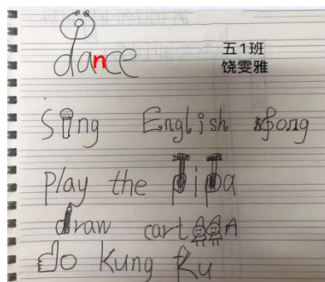 dance
五1班
饶雯雅
Sing English Song
play the pipa
draw cartooA
do Kung Ku